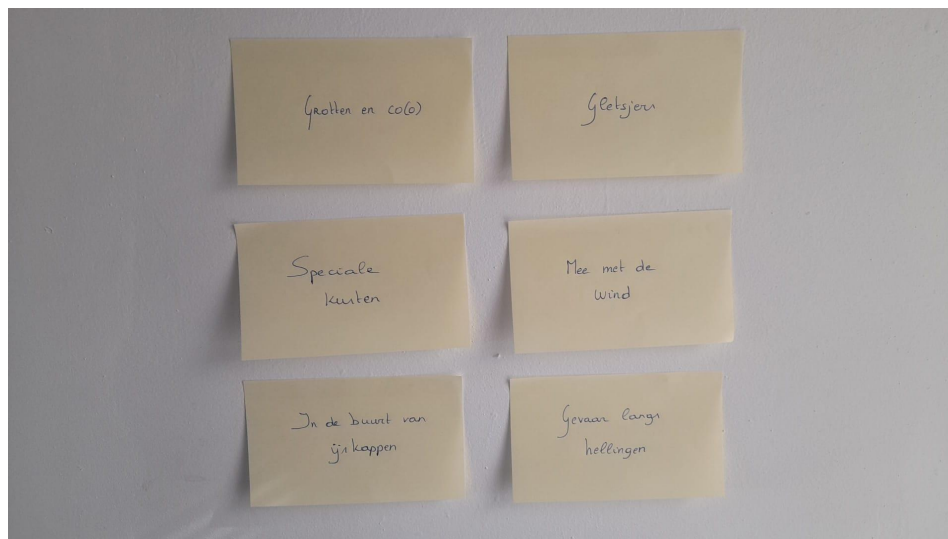 Grotten en co(o)
Gletsjers
Speciale
kusten
Mee met de
wind
In de buurt van
ijskappen
Gevaar langs
hellingen